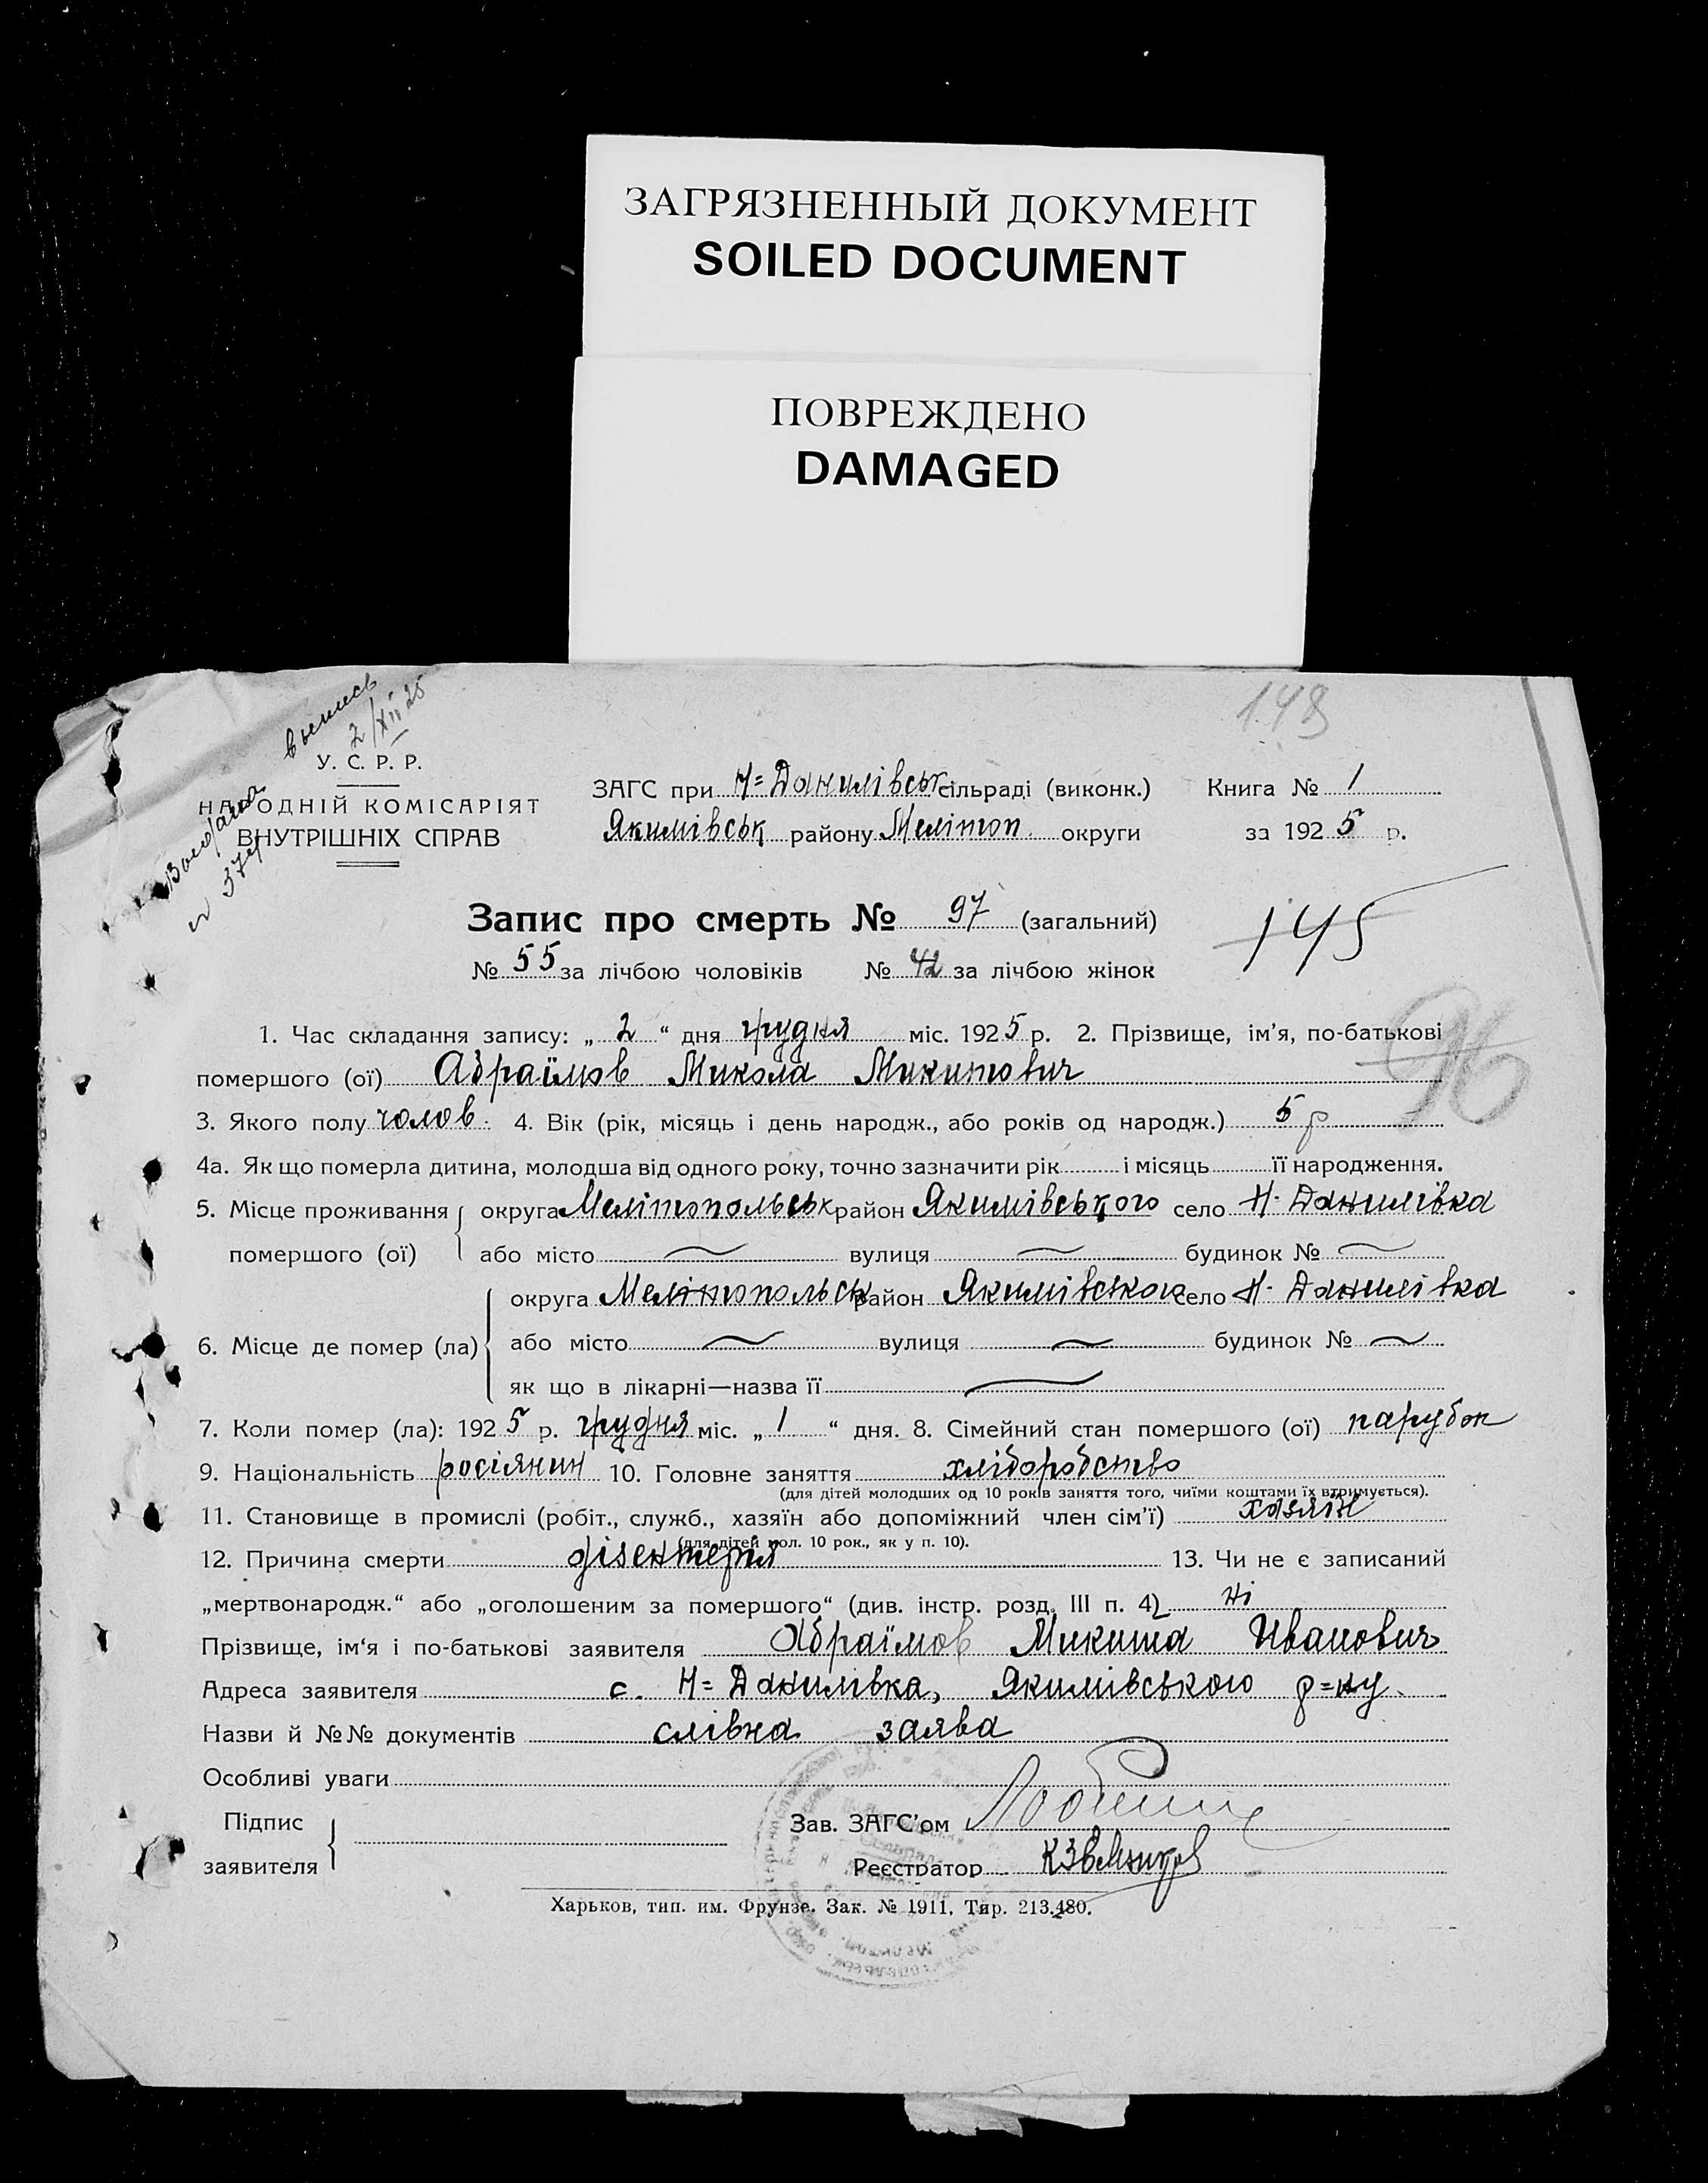 ЗАГРЯЗНЕННЫЙ ДОКУМЕНТ
SOILED DOCUMENT
ПОВРЕЖДЕНО
DAMAGED
выпись
2/XII 25
148
У. С. Р. Р.
НАРОДНІЙ КОМІСАРІЯТ
ВНУТРІШНІХ СПРАВ
ЗАГС при Н=Данилівськ сільраді (виконк.) Книга № 1
Якимівськ району Меліттоп. округи за 1925 р.
Запис про смерть № 97 (загальний)
145
№ 55 за лічбою чоловіків № 42 за лічбою жінок
96
1. Час складання запису: „ 2 “ дня грудня міс. 1925 р. 2. Прізвище, ім’я, по-батькові
помершого (ої) Абраїмов Микола Микитович
3. Якого полу чолов. 4. Вік (рік, місяць і день народж., або років од народж.) 5 р
4а. Як що померла дитина, молодша від одного року, точно зазначити рік і місяць її народження.
5. Місце проживання помершого (ої) округа Мелітопольськ район Якимівського село Н. Данилівка
або місто вулиця будинок №
6. Місце де помер (ла) округа Мелітопольськ район Якимівського село Н. Данилівка
або місто вулиця будинок №
як що в лікарні—назва її
7. Коли помер (ла): 1925 р. грудня міс. „ 1 “ дня. 8. Сімейний стан помершого (ої) парубок
9. Національність росіянин 10. Головне заняття хліборобство
(для дітей молодших од 10 років заняття того, чиїми коштами їх втримується).
11. Становище в промислі (робіт., служб., хазяїн або допоміжний член сім’ї) хазяїн
(для дітей мол. 10 рок., як у п. 10).
12. Причина смерти дізентерія 13. Чи не є записаний
„мертвонародж.“ або „оголошеним за помершого“ (див. інстр. розд. III п. 4) ні
Прізвище, ім‘я і по-батькові заявителя Абраїмов Микита Иванович
Адреса заявителя с. Н=Данилівка, Якимівського р=ну.
Назви й №№ документів слівна заява
Особливі уваги
Підпис заявителя
Зав. ЗАГС’ом
Реєстратор
Харьков, тип. им. Фрунзе. Зак. № 1911, Тир. 213.480.